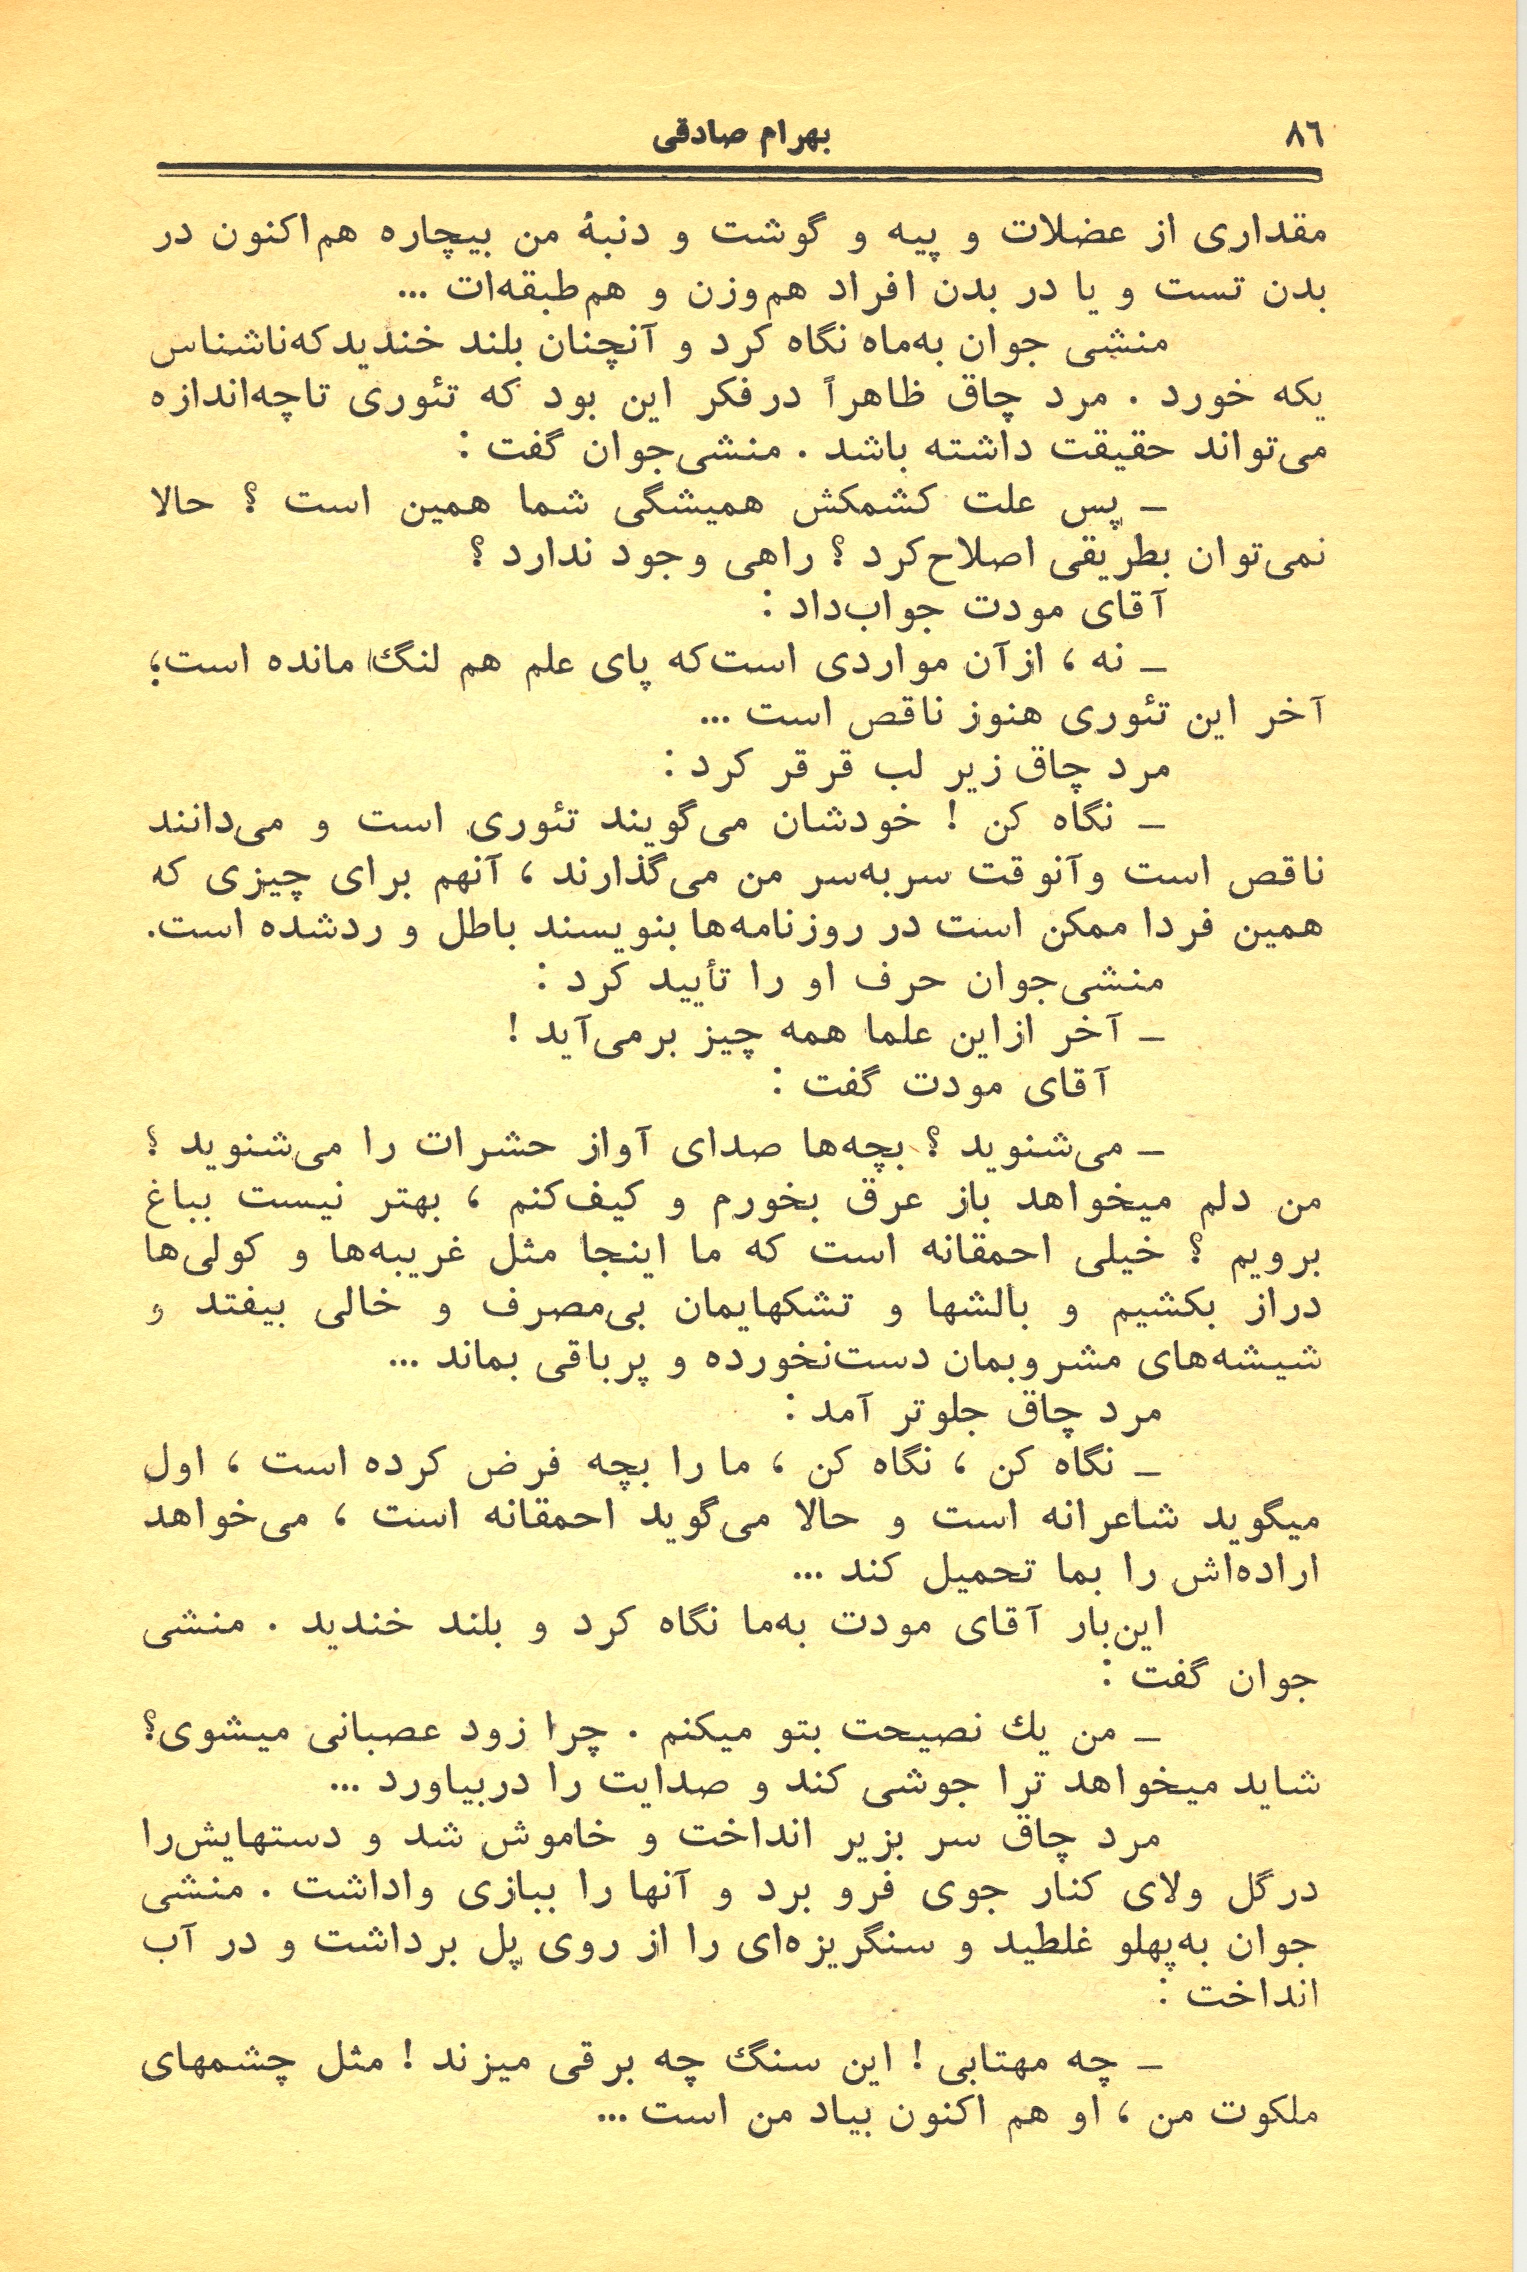 ۸٦
بهرام صادقی
مقداری از عضلات و پیه و گوشت و دنبهٔ من بیچاره هم‌اکنون در
بدن تست و یا در بدن افراد هم‌وزن و هم‌طبقه‌ات ...
منشی جوان به‌ماه نگاه کرد و آنچنان بلند خندیدکه‌ناشناس
یکه خورد . مرد چاق ظاهراً درفکر این بود که تئوری تاچه‌اندازه
می‌تواند حقیقت داشته باشد . منشی‌جوان گفت :
ـ پس علت کشمکش همیشگی شما همین است ؟ حالا
نمی‌توان بطریقی اصلاح‌کرد ؟ راهی وجود ندارد ؟
آقای مودت جواب‌داد :
ـ نه ، ازآن مواردی است‌که پای علم هم لنگ مانده است؛
آخر این تئوری هنوز ناقص است ...
مرد چاق زیر لب قرقر کرد :
ـ نگاه کن ! خودشان می‌گویند تئوری است و می‌دانند
ناقص است وآنوقت سربه‌سر من می‌گذارند ، آنهم برای چیزی که
همین فردا ممکن است در روزنامه‌ها بنویسند باطل و ردشده است.
منشی‌جوان حرف او را تأیید کرد :
ـ آخر ازاین علما همه چیز برمی‌آید !
آقای مودت گفت :
ـ می‌شنوید ؟ بچه‌ها صدای آواز حشرات را می‌شنوید ؟
من دلم میخواهد باز عرق بخورم و کیف‌کنم ، بهتر نیست بباغ
برویم ؟ خیلی احمقانه است که ما اینجا مثل غریبه‌ها و کولی‌ها
دراز بکشیم و بالشها و تشکهایمان بی‌مصرف و خالی بیفتد و
شیشه‌های مشروبمان دست‌نخورده و پرباقی بماند ...
مرد چاق جلوتر آمد :
ـ نگاه کن ، نگاه کن ، ما را بچه فرض کرده است ، اول
میگوید شاعرانه است و حالا می‌گوید احمقانه است ، می‌خواهد
اراده‌اش را بما تحمیل کند ...
این‌بار آقای مودت به‌ما نگاه کرد و بلند خندید . منشی
جوان گفت :
ـ من یك نصیحت بتو میکنم . چرا زود عصبانی میشوی؟
شاید میخواهد ترا جوشی کند و صدایت را دربیاورد ...
مرد چاق سر بزیر انداخت و خاموش شد و دستهایش‌را
درگل ولای کنار جوی فرو برد و آنها را ببازی واداشت . منشی
جوان به‌پهلو غلطید و سنگریزه‌ای را از روی پل برداشت و در آب
انداخت :
ـ چه مهتابی ! این سنگ چه برقی میزند ! مثل چشمهای
ملکوت من ، او هم اکنون بیاد من است ...